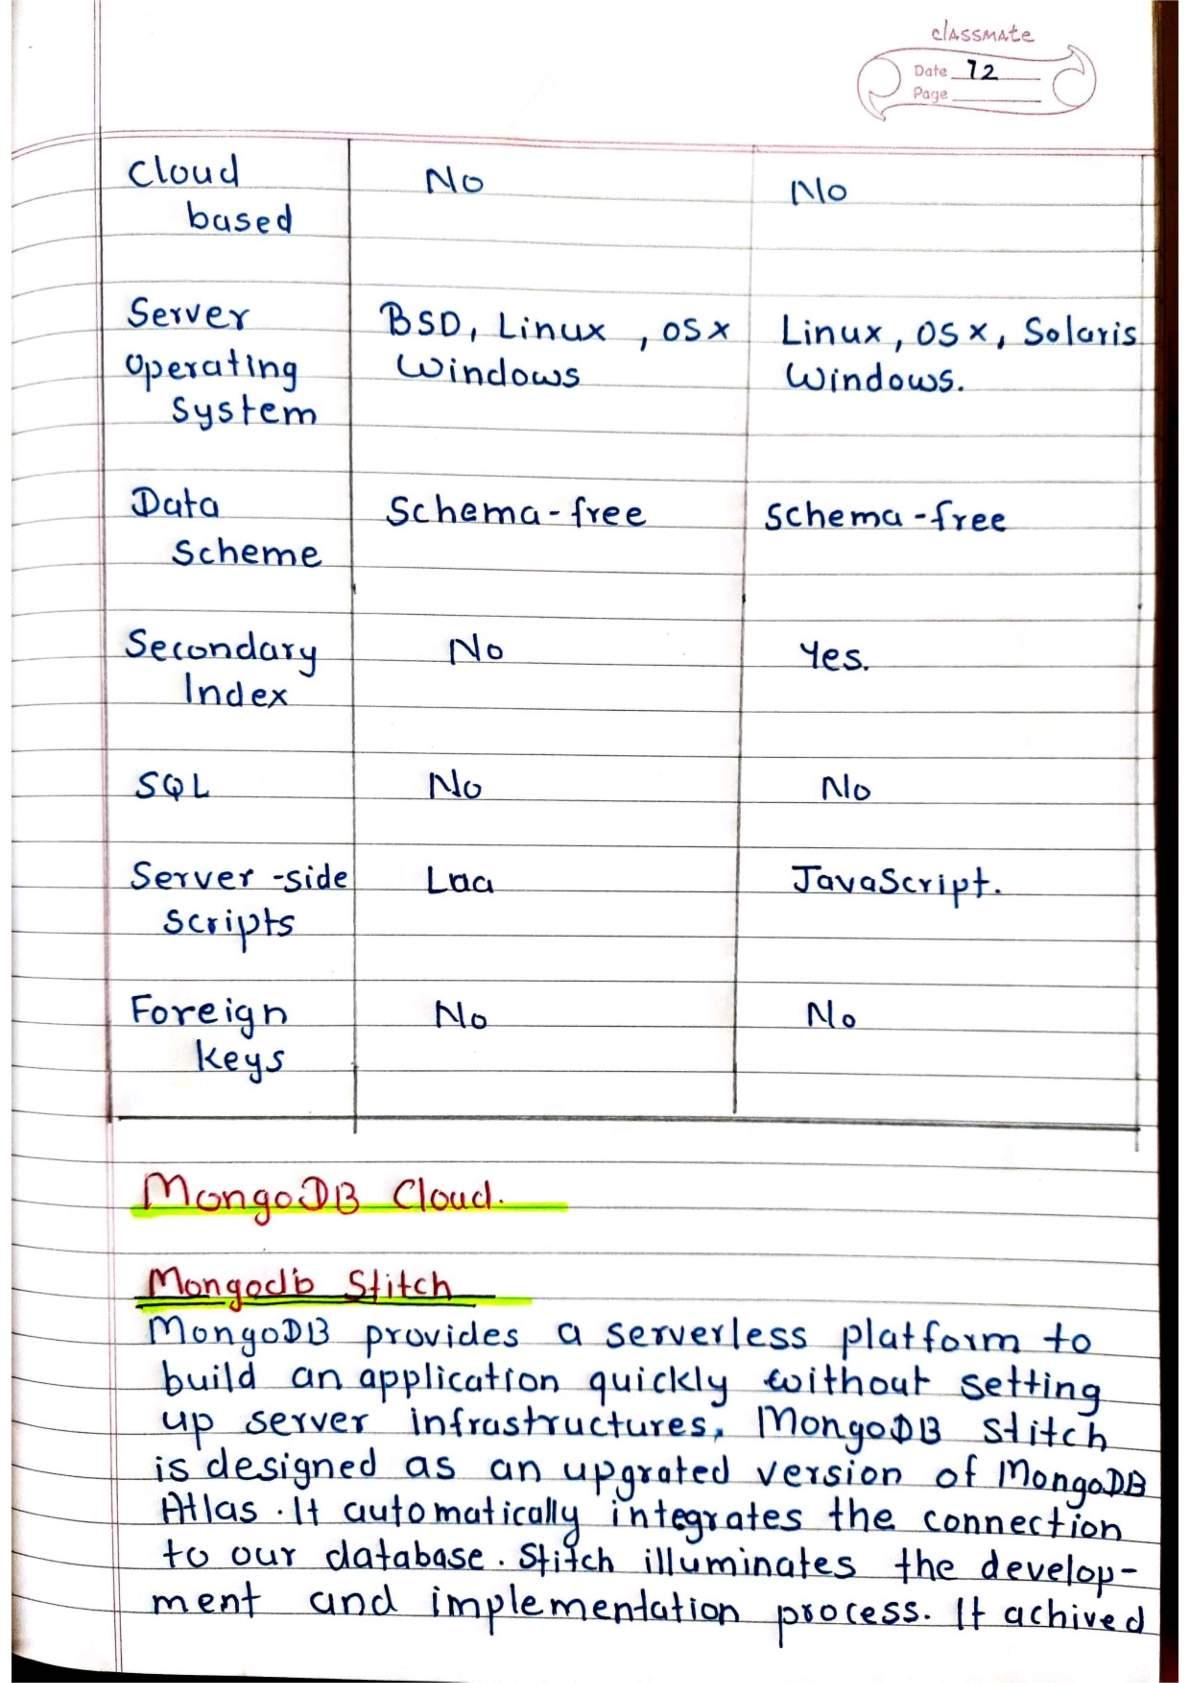 classmate
Date 12
Page
Cloud based | No | No
Server Operating System | BSD, Linux, OSX Windows | Linux, OSX, Solaris Windows.
Data Scheme | Schema-free | Schema-free
Secondary Index | No | Yes.
SQL | No | No
Server-side Scripts | Laa | JavaScript.
Foreign keys | No | No
MongoDB Cloud.
Mongodb Stitch
MongoDB provides a serverless platform to
build an application quickly without setting
up server infrastructures, MongoDB Stitch
is designed as an upgrated version of MongoDB
Atlas. It automatically integrates the connection
to our database. Stitch illuminates the develop-
ment and implementation process. It achived